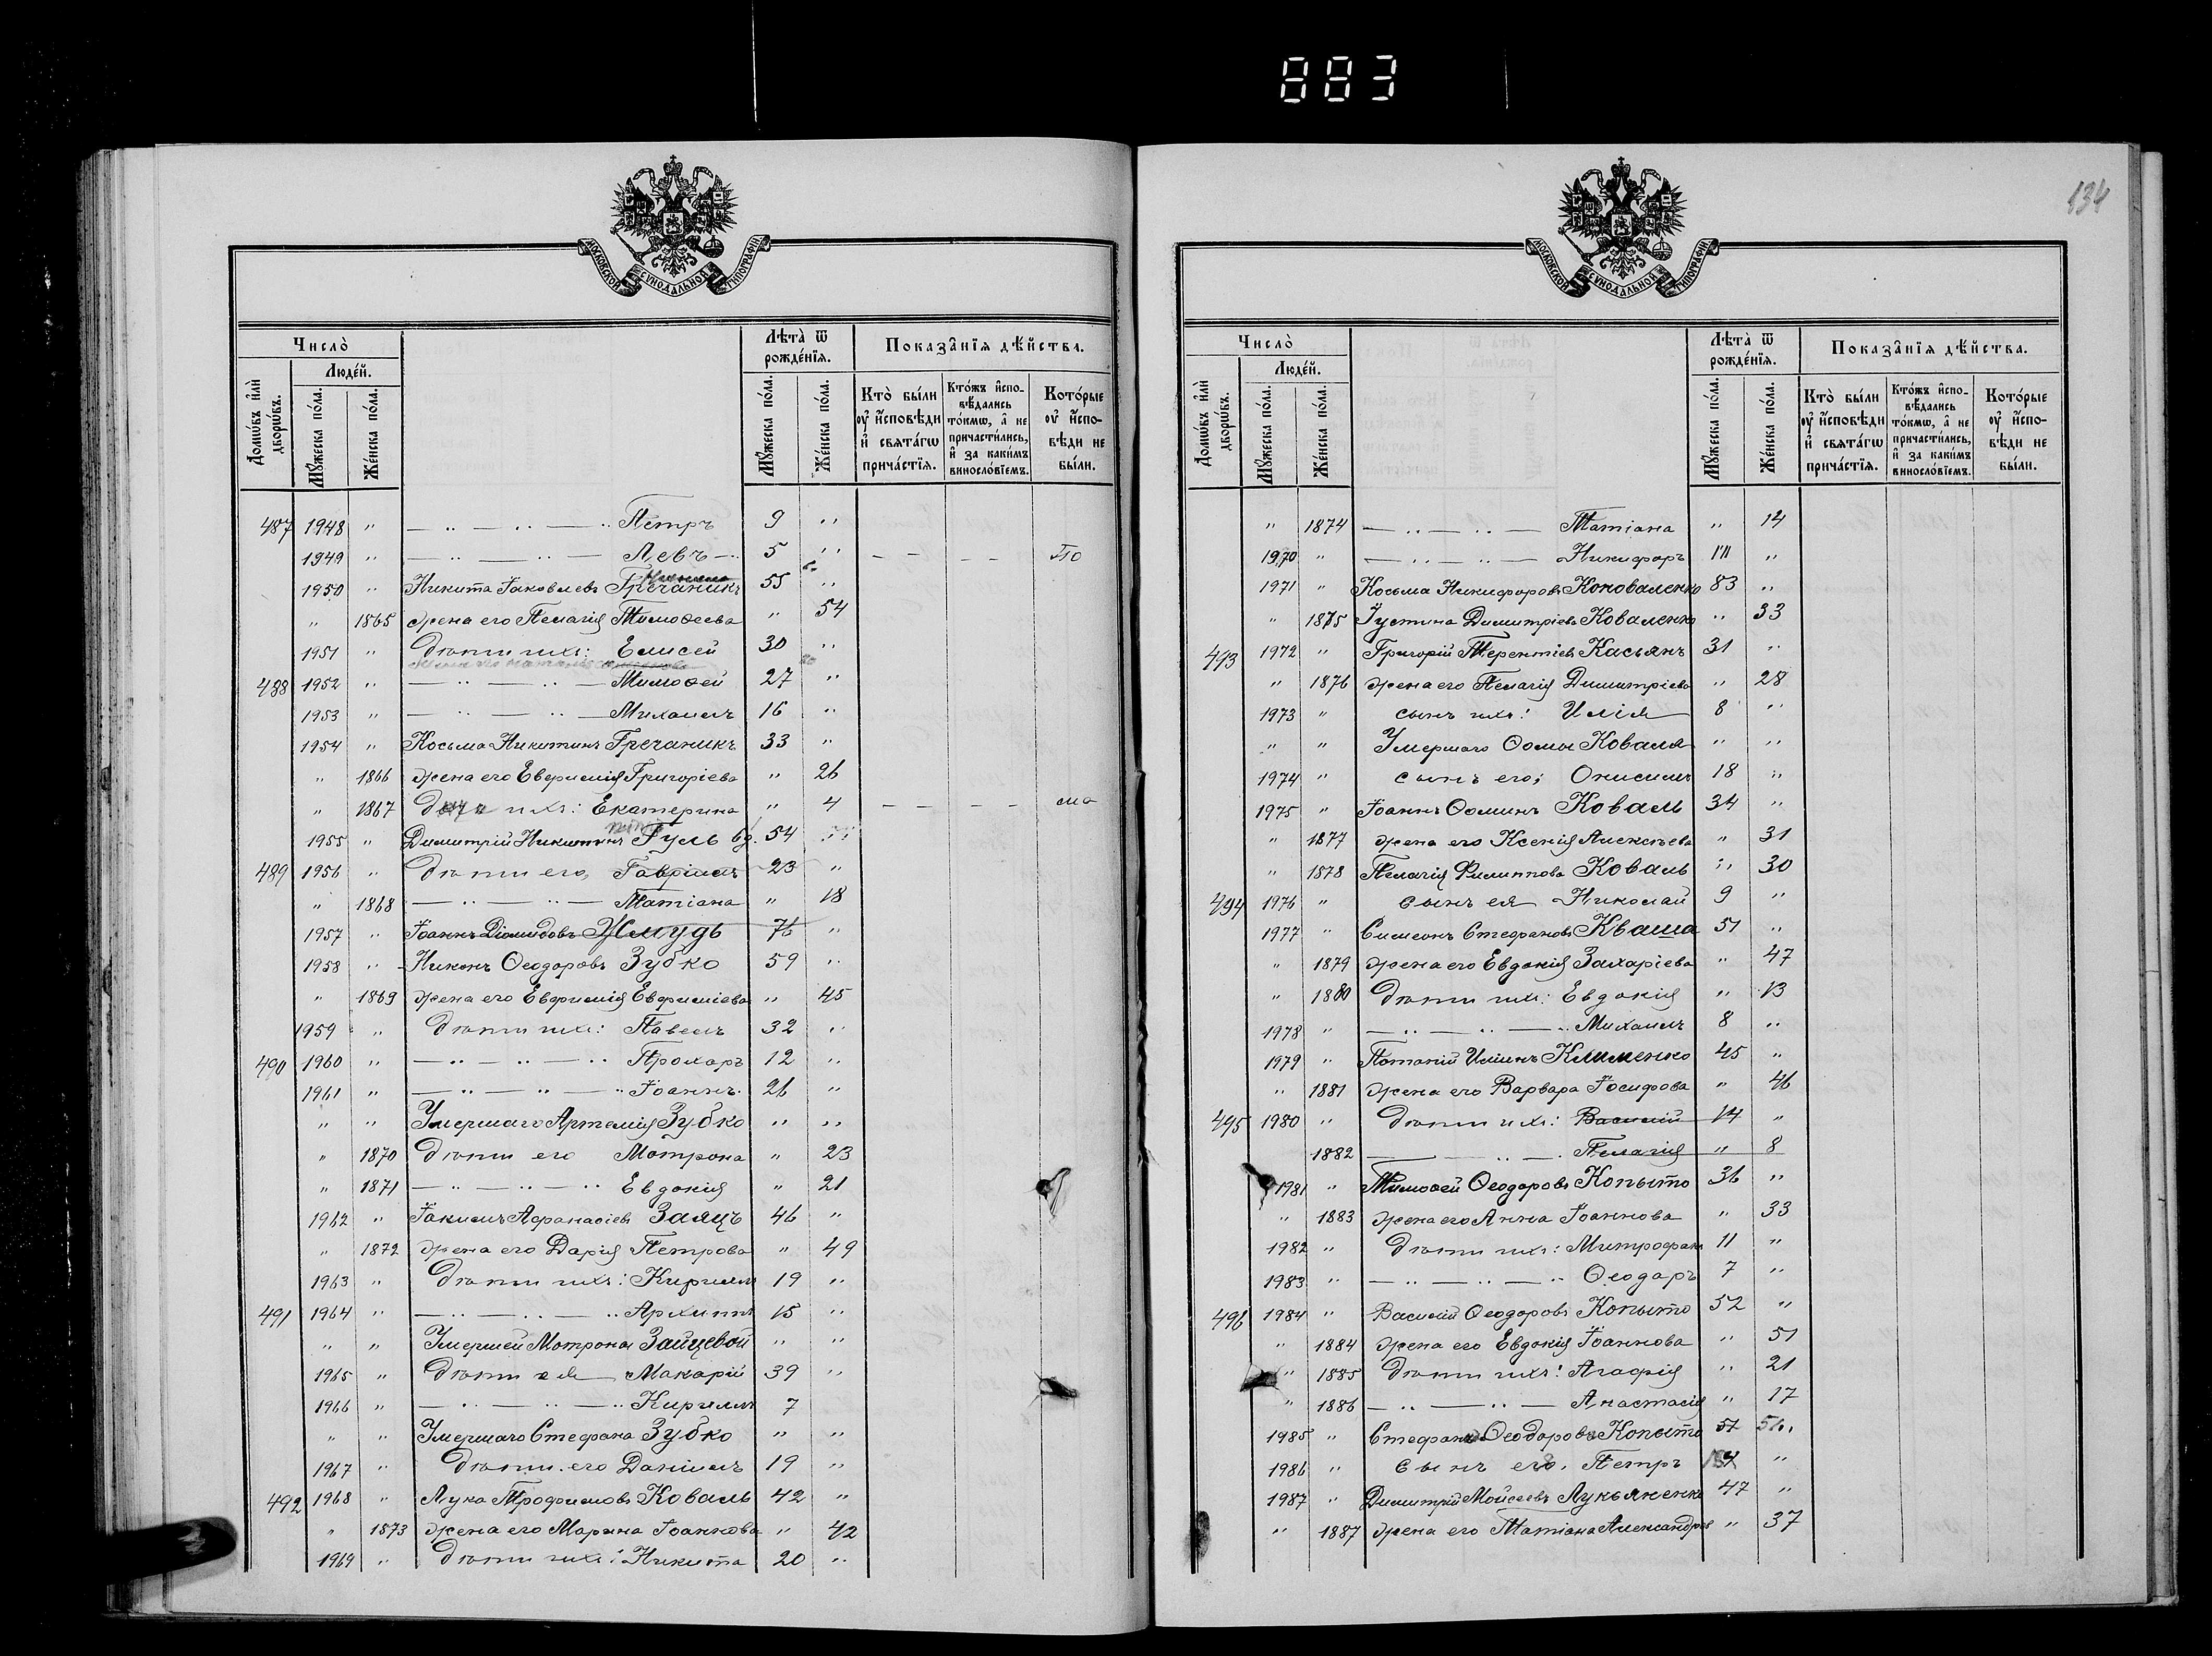 883
МОСКОВСКОЙ СѴНОДАЛЬНОЙ ТИПОГРАФІИ
Число̀
Люде́й.
Домѡ́въ и҆лѝ дворѡ́въ.
Мꙋ́жеска по́ла.
Же́нска по́ла.
Лѣта̀ ѿ рожде́нїѧ.
Мꙋ́жеска по́ла.
Же́нска по́ла.
Показа̑нїѧ дѣ́йства.
Кто̀ бы́ли оу҆ и҆́сповѣди и҆ свѧта́гѡ прича́стїѧ.
Кто́жъ и҆спо-вѣ́дались то́кмѡ, а҆ не причасти́лись, и҆ за каки́мъ винослѡ́вїемъ.
Кото́рые оу҆ и҆́спо-вѣди не бы́ли.
487 1948 " — " — " — " Петръ 9 "
1949 " — " — " — Левъ — 5 " — — — — По
1950 " Никита Іаковлевъ Гречаникъ 55 "
" 1865 жена его Пелагія Тимоѳеева " 54
1951 " дѣти ихъ: Елисей 30 "
488 1952 " — " — " — Тимоѳей 27 "
1953 " — " — " — Михаилъ 16 "
1954 " Косьма Никитинъ Гречаникъ 33 "
" 1866 жена его Евфимія Григоріева " 26
" 1867 дочь ихъ: Екатерина " 4 — — — — ма
1955 " Димитрій Никитинъ Гуль вд. 54 "
489 1956 " дѣти его, Гавріилъ 23 "
" 1868 — " — " — Татіана " 18
1957 " Іоаннъ Діомидовъ Жмудь 76 "
1958 " Никонъ Ѳеодоровъ Зубко 59 "
" 1869 жена его Евфимія Евфиміева " 45
1959 " дѣти ихъ: Павелъ 32 "
490 1960 " — " — " — " Прохоръ 12 "
1961 " — " — " — " Іоаннъ 26 "
" " Умершаго Артемія Зубко " "
" 1870 дѣти его Мотрона " 23
" 1871 — " — " — " Евдокія " 21
1962 " Іакимъ Афанасіевъ Заяцъ 46 "
" 1872 жена его Дарія Петрова " 49
1963 " дѣти ихъ: Кириллъ 19 "
491 1964 " — " — " — " Архиппъ 15 "
" " Умершей Мотроны Зайцевой " "
1965 " дѣти ея Макарій 39 "
1966 " — " — " — " Кириллъ 7
" " Умершаго Стефана Зубко " "
1967 " дѣти его Даніилъ 19 "
492 1968 " Лука Трофимовъ Коваль 42 "
" 1873 жена его Марина Іоаннова " 42
1969 " дѣти ихъ: Никита 20 "
134
МОСКОВСКОЙ СѴНОДАЛЬНОЙ ТИПОГРАФІИ
Число̀
Люде́й.
Домѡ́въ и҆лѝ дворѡ́въ.
Мꙋ́жеска по́ла.
Же́нска по́ла.
Лѣта̀ ѿ рожде́нїѧ.
Мꙋ́жеска по́ла.
Же́нска по́ла.
Показа̑нїѧ дѣ́йства.
Кто̀ бы́ли оу҆ и҆́сповѣди и҆ свѧта́гѡ прича́стїѧ.
Кто́жъ и҆спо-вѣ́дались то́кмѡ, а҆ не причасти́лись, и҆ за каки́мъ винослѡ́вїемъ.
Кото́рые оу҆ и҆́спо-вѣди не бы́ли.
" 1874 — " — " — Татіана " 14
1970 " — " — " — Никифоръ "
1971 " Косьма Никифоровъ Коноваленко 83 "
" 1875 Іустина Димитріева Коваленко " 33
493 1972 " Григорій Терентіевъ Касьянъ 31 "
" 1876 жена его Пелагія Димитріева " 28
1973 " сынъ ихъ: Илія 8 "
" " Умершаго Ѳомы Коваля " "
1974 " сынъ его: Онисимъ 18 "
1975 " Іоаннъ Ѳоминъ Коваль 34 "
" 1877 жена его Ксенія Алексѣева " 31
" 1878 Пелагія Филиппова Коваль " 30
494 1976 " сынъ ея Николай 9 "
1977 " Симеонъ Стефановъ Кваша 51 "
" 1879 жена его Евдокія Захаріева " 47
" 1880 дѣти ихъ: Евдокія " 13
1978 " — " — " — " Михаилъ 8 "
1979 " Потапій Иліинъ Клименко 45 "
" 1881 жена его Варвара Іосифова " 46
495 1980 " дѣти ихъ: Василій 14 "
1882 — " — Пелагія " 8
1981 " Тимоѳей Ѳеодоровъ Копыто 36 "
" 1883 жена его Анна Іоаннова " 33
1982 " дѣти ихъ: Митрофанъ 11 "
1983 " — " — " — " Ѳеодоръ 7 "
496 1984 " Василій Ѳеодоровъ Копыто 52 "
" 1884 жена его Евдокія Іоаннова " 51
" 1885 дѣти ихъ: Агафія " 21
" 1886 — " — " — Анастасія " 17
1985 " Стефанъ Ѳеодоровъ Копыто
1986 " сынъ его, Петръ "
1987 " Димитрій Мойсеевъ Лукьяненко 47 "
" 1887 жена его Татіана Александров " 37